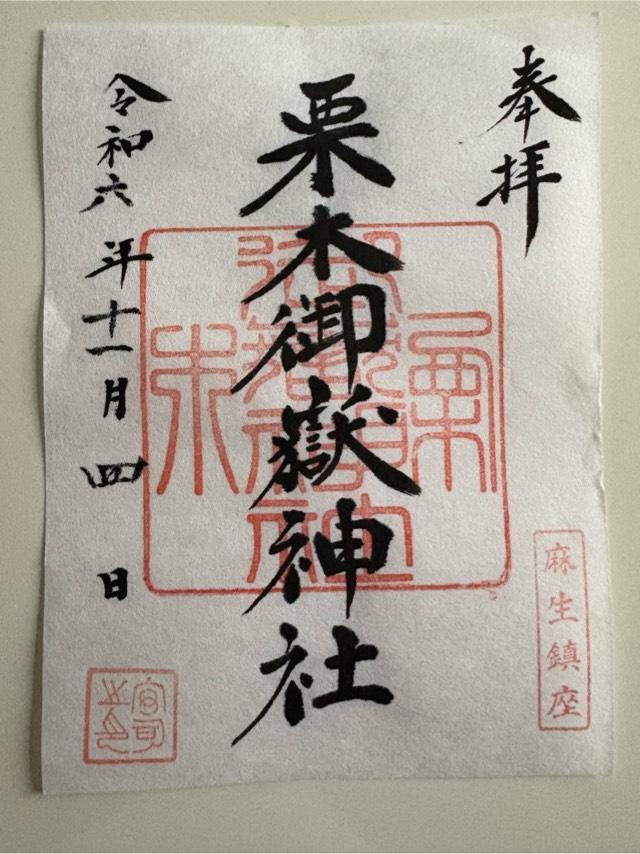 奉拝
麻生鎮座
栗木御嶽神社
令和六年十一月四日
宮司之印